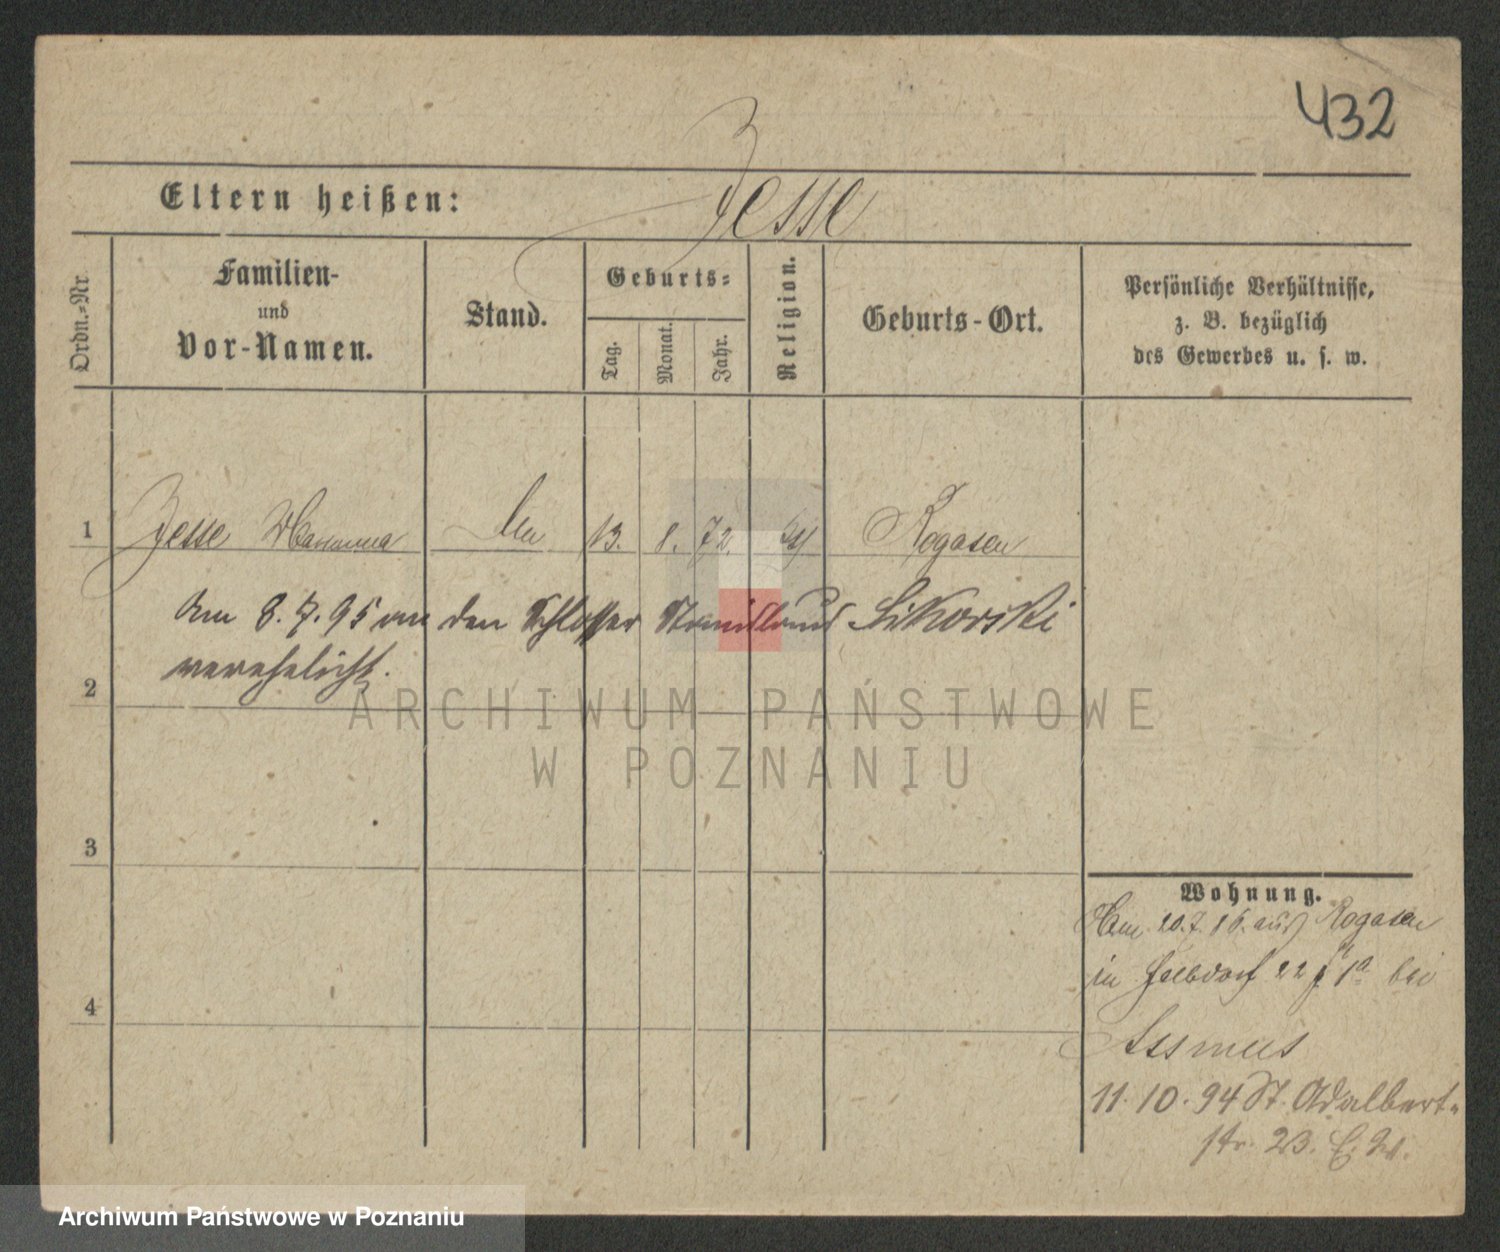 432
Eltern heißen: Jesse
Ordn.-Nr.
Familien-
und
Vor-Namen.
Stand.
Geburts-
Tag.
Monat.
Jahr.
Religion.
Geburts-Ort.
Persönliche Verhältnisse,
z. B. bezüglich
des Gewerbes u. s. w.
1 Jesse Marianna 13. 8. 72. Rogasen
Am 8.7.95 an den Schlosser Stanislaus Sikorski
verehelicht.
2
3
4
Wohnung.
20.7. aus Rogasen
in Halbdorf 22 bei
Assmus
11.10.94 St. Adalbert-
str. 23.
ARCHIWUM PAŃSTWOWE
W POZNANIU
Archiwum Państwowe w Poznaniu